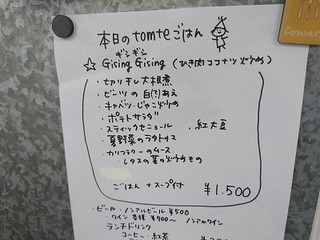 本日のtomteごはん
ギシギシ
☆ Gising Gising (ひき肉ココナツ炒め)
・切り干し大根煮
・ビーツの白あえ
・キャベツ・じゃこ炒め
・ポテトサラダ
・スティックセニョール ・紅大豆
・夏野菜のラタトゥユ
・カリフラワーのムース
・レタスの葉の炒めもの
ごはん +スープ付 ¥1.500
・ビール・ノンアルビール ¥500
ワイン 各種 ¥700〜 ノンアルワイン
ランチドリンク
コーヒー・紅茶